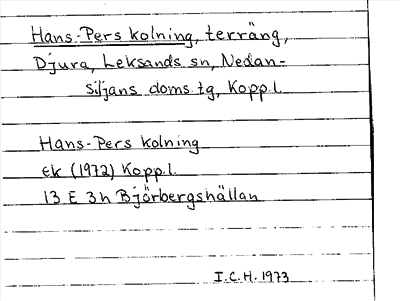 Hans-Pers kolning, terräng,
Djura, Leksands sn, Nedan-
siljans doms.tg, Kopp.l.
Hans-Pers kolning
ek (1972) Kopp.l.
13 E 3h Björbergshällan
I.C.H. 1973